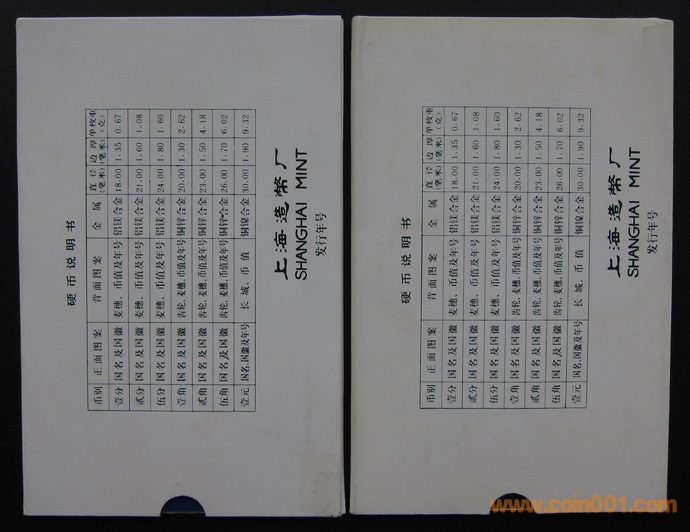 硬币说明书
币别 正面图案 背面图案 金属 直径(毫米) 边厚(毫米) 单枚重(克)
壹分 国名及国徽 麦穗、币值及年号 铝镁合金 18.00 1.35 0.67
贰分 国名及国徽 麦穗、币值及年号 铝镁合金 21.00 1.60 1.08
伍分 国名及国徽 麦穗、币值及年号 铝镁合金 24.00 1.80 1.60
壹角 国名及国徽 齿轮、麦穗、币值及年号 铜锌合金 20.00 1.30 2.62
贰角 国名及国徽 齿轮、麦穗、币值及年号 铜锌合金 23.00 1.50 4.18
伍角 国名及国徽 齿轮、麦穗、币值及年号 铜锌合金 26.00 1.70 6.02
壹元 国名、国徽及年号 长城、币值 铜镍合金 30.00 1.90 9.32
上海造幣厂
SHANGHAI MINT
发行年号
硬币说明书
币别 正面图案 背面图案 金属 直径(毫米) 边厚(毫米) 单枚重(克)
壹分 国名及国徽 麦穗、币值及年号 铝镁合金 18.00 1.35 0.67
贰分 国名及国徽 麦穗、币值及年号 铝镁合金 21.00 1.60 1.08
伍分 国名及国徽 麦穗、币值及年号 铝镁合金 24.00 1.80 1.60
壹角 国名及国徽 齿轮、麦穗、币值及年号 铜锌合金 20.00 1.30 2.62
贰角 国名及国徽 齿轮、麦穗、币值及年号 铜锌合金 23.00 1.50 4.18
伍角 国名及国徽 齿轮、麦穗、币值及年号 铜锌合金 26.00 1.70 6.02
壹元 国名、国徽及年号 长城、币值 铜镍合金 30.00 1.90 9.32
上海造幣厂
SHANGHAI MINT
发行年号
www.coin001.com